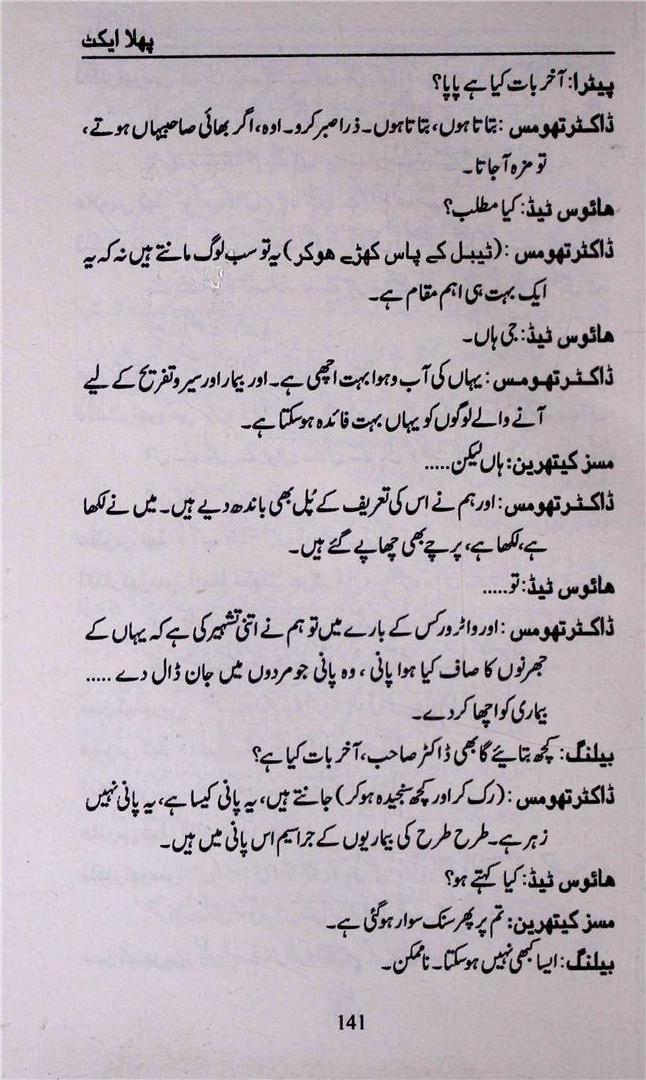 پہلا ایکٹ
پیٹرا: آخر بات کیا ہے پاپا؟
ڈاکٹر تھومس: بتاتا ہوں، بتاتا ہوں۔ ذرا صبر کرو۔ اوہ، اگر بھائی صاحب یہاں ہوتے،
تو مزہ آ جاتا۔
ھائوس ٹیڈ: کیا مطلب؟
ڈاکٹر تھومس: (ٹیبل کے پاس کھڑے ھوکر) یہ تو سب لوگ مانتے ہیں نہ کہ یہ
ایک بہت ہی اہم مقام ہے۔
ھائوس ٹیڈ: جی ہاں۔
ڈاکٹر تھومس: یہاں کی آب و ہوا بہت اچھی ہے۔ اور بیمار اور سیر و تفریح کے لیے
آنے والے لوگوں کو یہاں بہت فائدہ ہو سکتا ہے۔
مسز کیتھرین: ہاں لیکن.....
ڈاکٹر تھومس: اور ہم نے اس کی تعریف کے پُل بھی باندھ دیے ہیں۔ میں نے لکھا
ہے، لکھا ہے، پرچے بھی چھاپے گئے ہیں۔
ھائوس ٹیڈ: تو.....
ڈاکٹر تھومس: اور واٹر ورکس کے بارے میں تو ہم نے اتنی تشہیر کی ہے کہ یہاں کے
جھرنوں کا صاف کیا ہوا پانی، وہ پانی جو مردوں میں جان ڈال دے .....
بیماری کو اچھا کر دے۔
بیلنگ: کچھ بتائیے گا بھی ڈاکٹر صاحب، آخر بات کیا ہے؟
ڈاکٹر تھومس: (رک کر اور کچھ سنجیدہ ہوکر) جانتے ہیں، یہ پانی کیسا ہے، یہ پانی نہیں
زہر ہے۔ طرح طرح کی بیماریوں کے جراسیم اس پانی میں ہیں۔
ھائوس ٹیڈ: کیا کہتے ہو؟
مسز کیتھرین: تم پر پھر سنک سوار ہو گئی ہے۔
بیلنگ: ایسا کبھی نہیں ہو سکتا۔ ناممکن۔
141